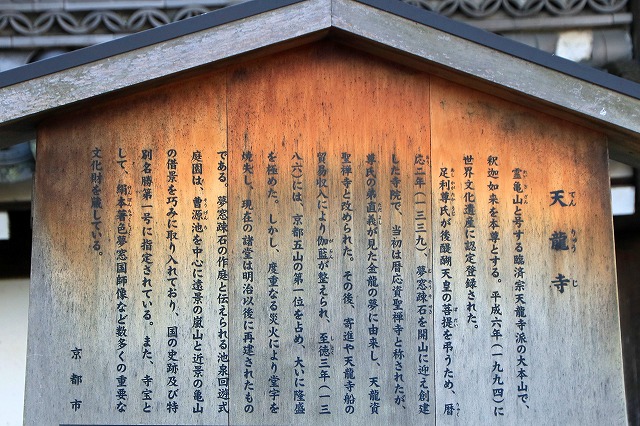 天龍寺
てんりゅうじ
霊亀山と号する臨済宗天龍寺派の大本山で、
釈迦如来を本尊とする。平成六年(一九九四)に
世界文化遺産に認定登録された。
足利尊氏が後醍醐天皇の菩提を弔うため、暦
応二年(一三三九)、夢窓疎石を開山に迎え創建
した寺院で、当初は暦応資聖禅寺と称されたが、
尊氏の弟直義が見た金龍の夢に由来し、天龍資
聖禅寺と改められた。その後、寄進や天龍寺船の
貿易収入により伽藍が整えられ、至徳三年(一三
八六)には、京都五山の第一位を占め、大いに隆盛
を極めた。しかし、度重なる災火により堂宇を
焼失し、現在の諸堂は明治以後に再建されたもの
である。夢窓疎石の作庭と伝えられる池泉回遊式
庭園は、曹源池を中心に遠景の嵐山と近景の亀山
の借景を巧みに取り入れており、国の史跡及び特
別名勝第一号に指定されている。また、寺宝と
して、絹本著色夢窓国師像など数多くの重要な
文化財を蔵している。
京都市